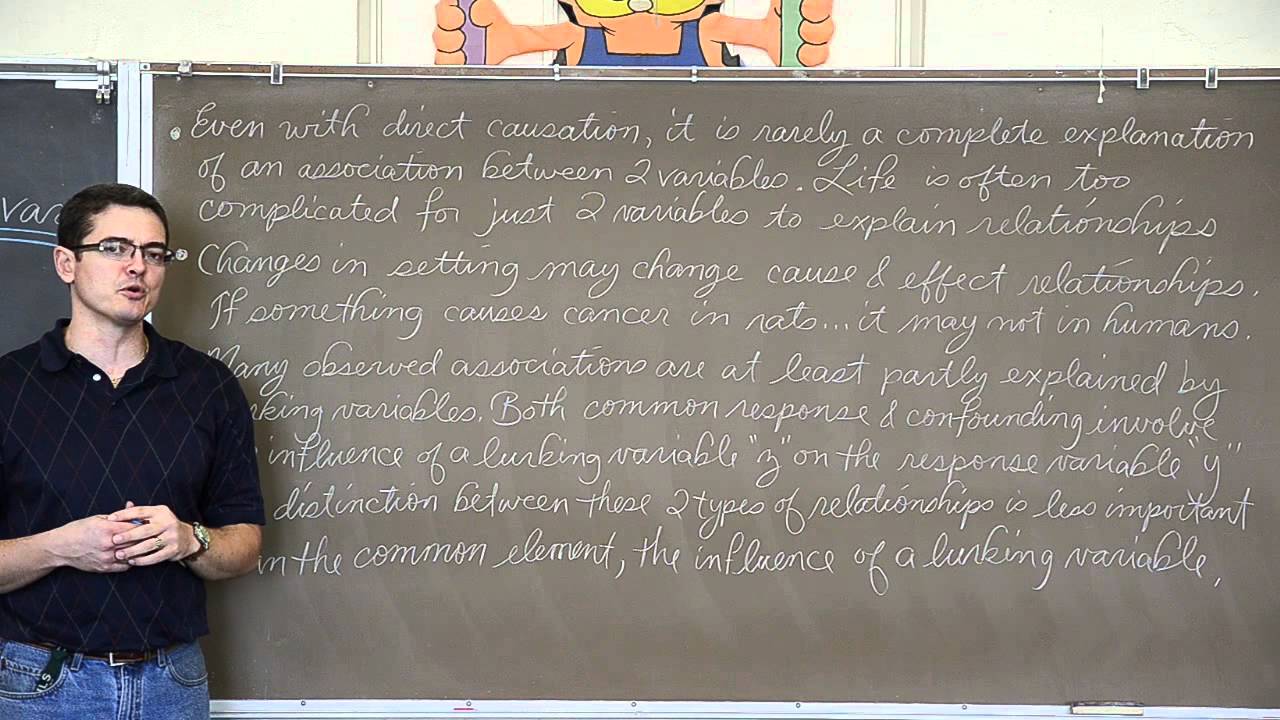 var
• Even with direct causation, it is rarely a complete explanation
of an association between 2 variables. Life is often too
complicated for just 2 variables to explain relationships
• Changes in setting may change cause & effect relationships.
If something causes cancer in rats... it may not in humans.
Many observed associations are at least partly explained by
rking variables. Both common response & confounding involve
influence of a lurking variable "z" on the response variable "y"
distinction between these 2 types of relationships is less important
an the common element, the influence of a lurking variable.